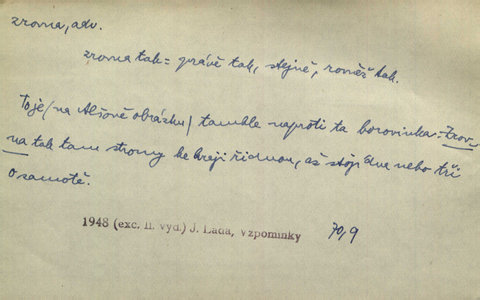 zrovna, adv.
zrovna tak = právě tak, stejně, rovněž tak.
To je /na Alšově obrázku/ tamhle naproti ta borovinka: zrov-
na tak tam stromy ke kraji řidnou, až stojí dva nebo tři
o samotě.
1948 (exc. II. vyd.) J. Lada, Vzpomínky 70,9